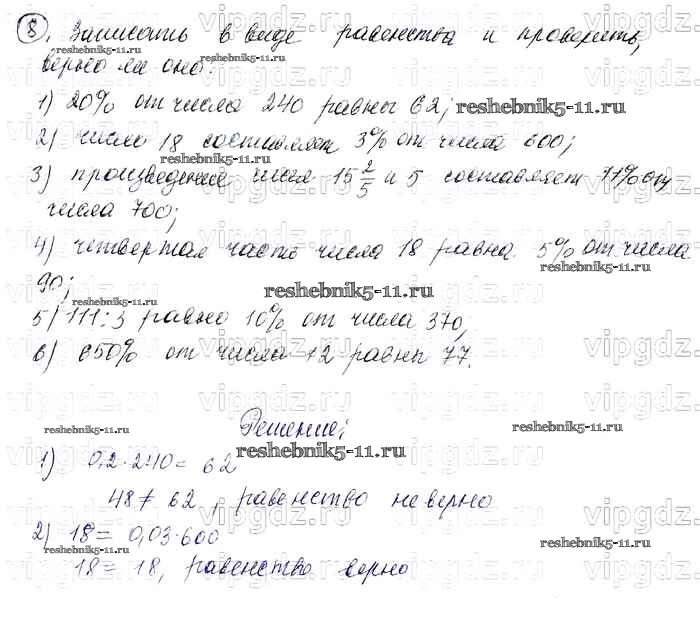 8. Записать в виде равенства и проверить,
верно ли оно:
1) 20% от числа 240 равны 62;
2) число 18 составляет 3% от числа 600;
3) произведение чисел 15 2/5 и 5 составляет 11% от
числа 700;
4) четвертая часть числа 18 равна 5% от числа
90;
5) 111:3 равно 10% от числа 370;
6) 650% от числа 12 равны 77.
Решение:
1) 0,2·240 = 62
48 ≠ 62, равенство неверно
2) 18 = 0,03·600
18 = 18, равенство верно
reshebnik5-11.ru
vipgdz.ru